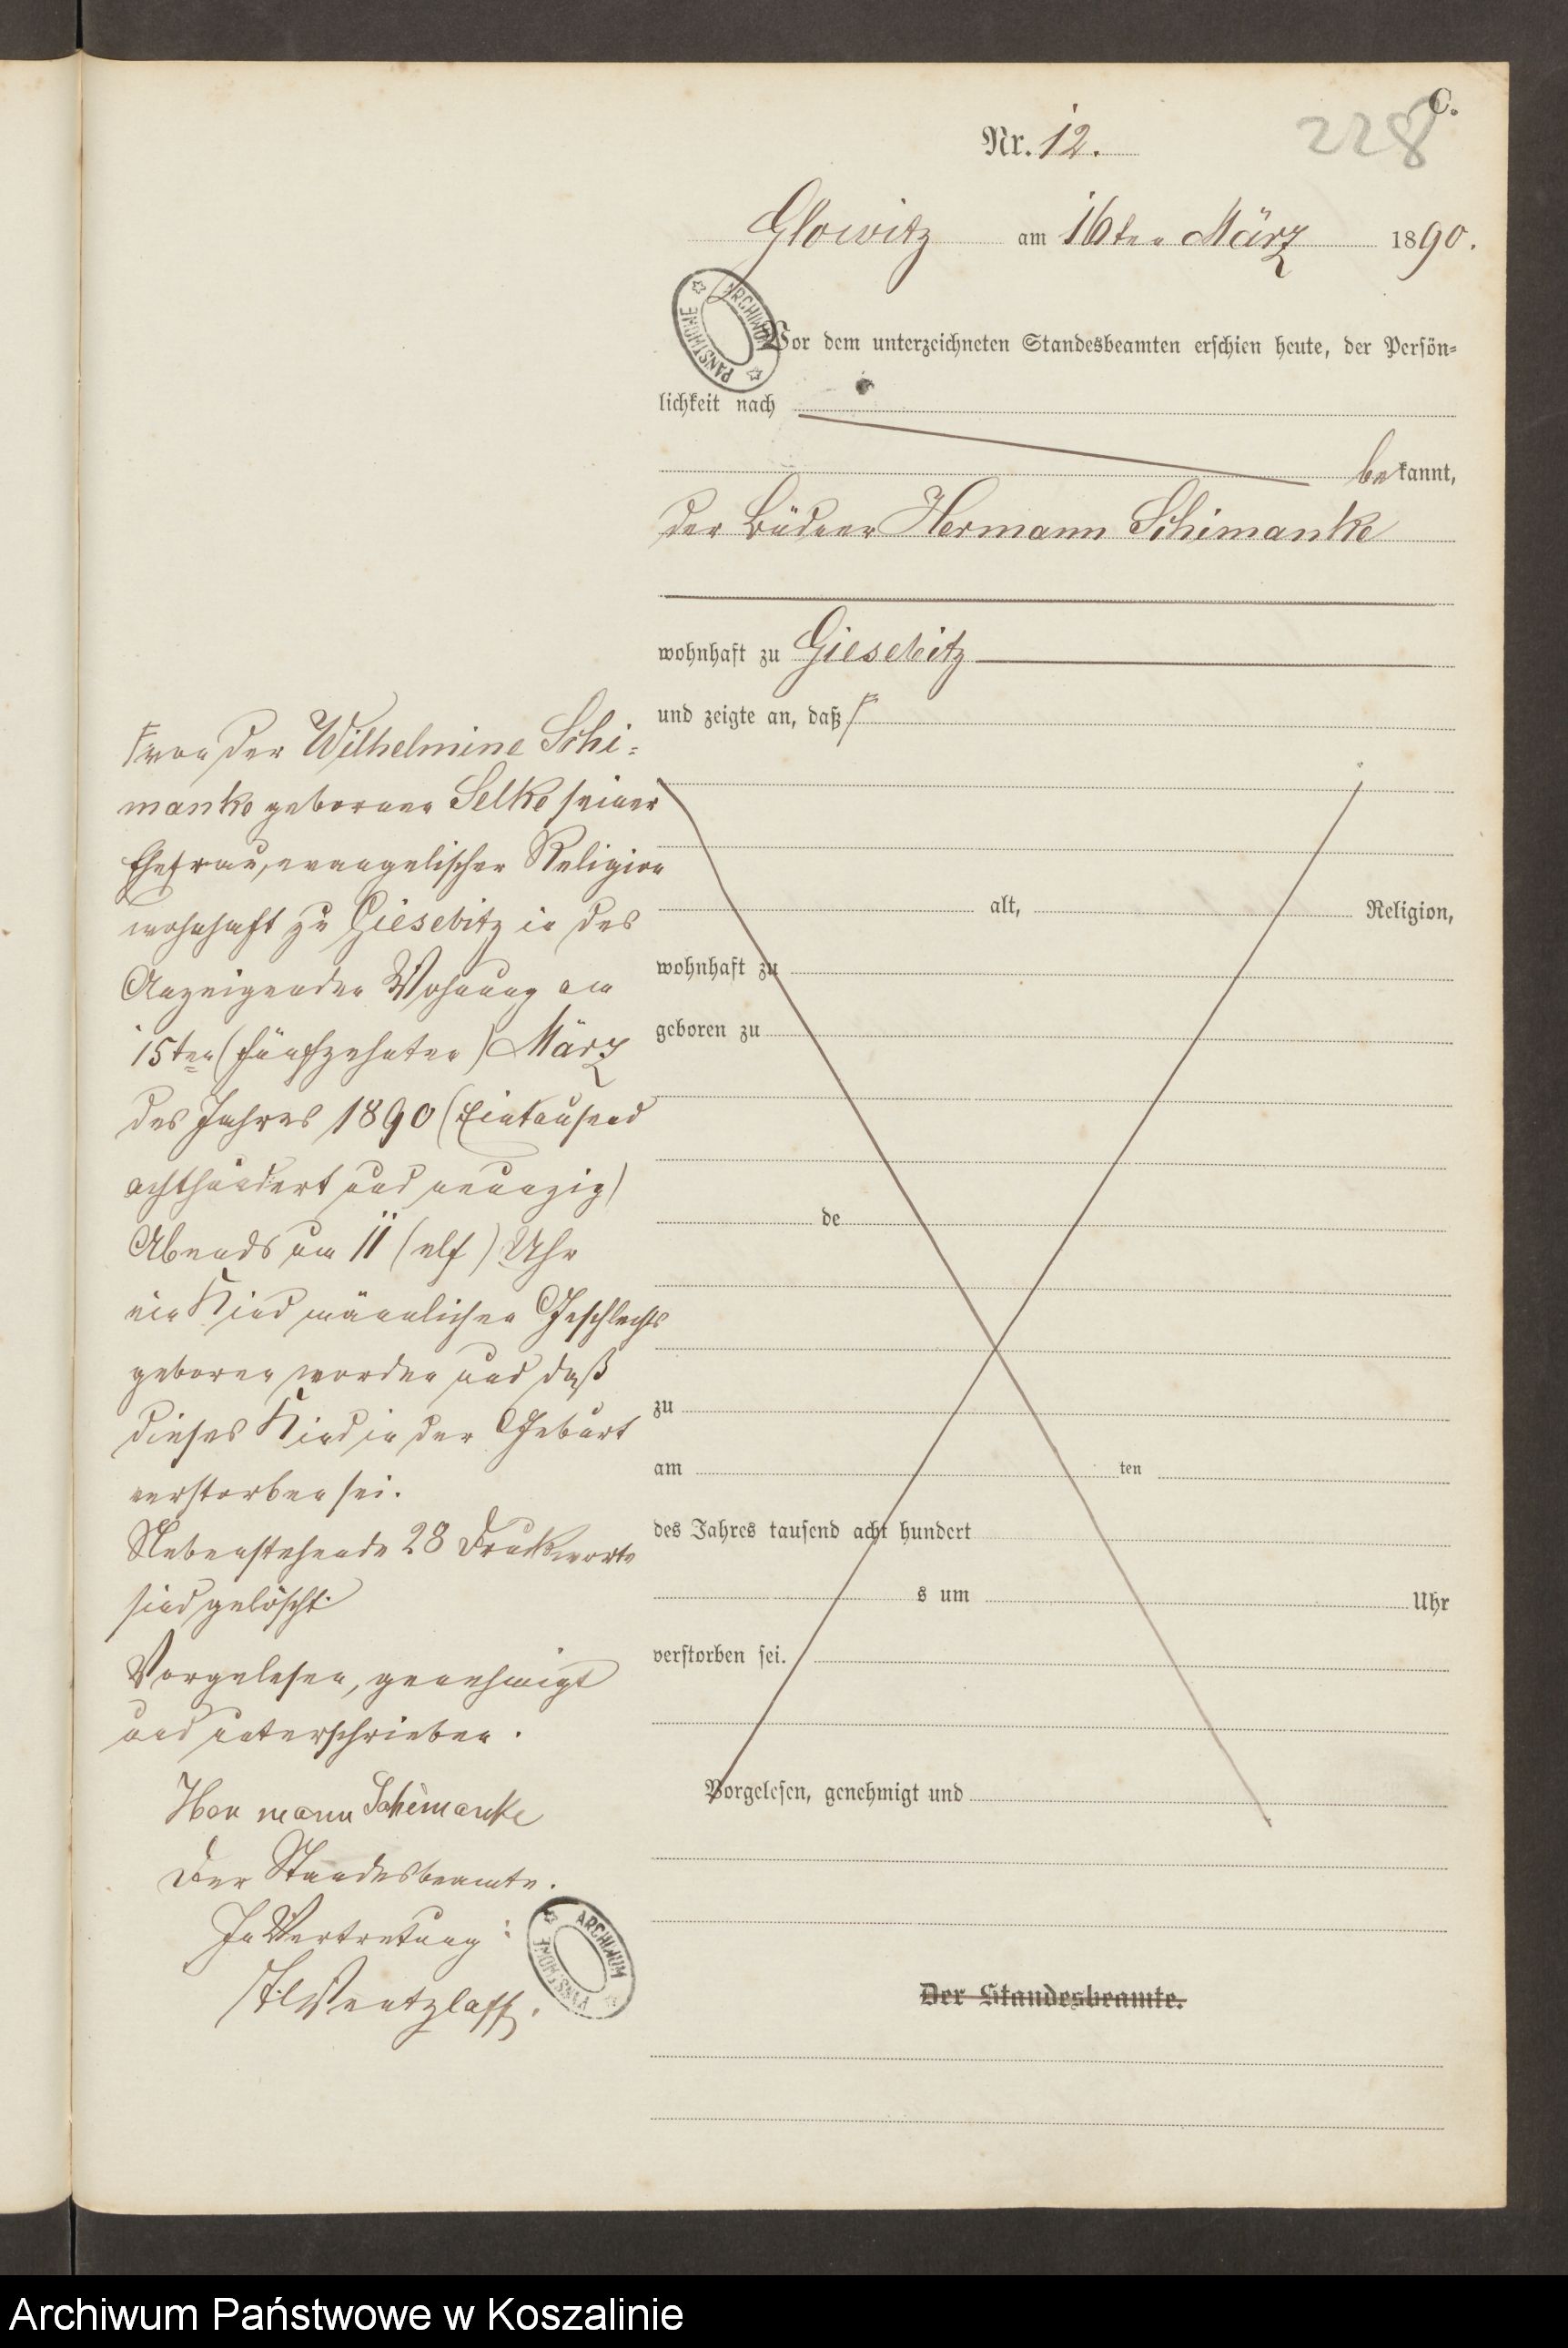 C.
228
Nr. 12.
Glowitz am 16ten März 1890.
ARCHIWUM PAŃSTWOWE
Vor dem unterzeichneten Standesbeamten erschien heute, der Persön-
lichkeit nach
bekannt,
der Büdner Hermann Schimanke
wohnhaft zu Giesebitz
und zeigte an, daß
von der Wilhelmine Schi-
manke geborner Selke seiner
Ehefrau, evangelischer Religion
wohnhaft zu Giesebitz in des
Anzeigenden Wohnung am
15ten (fünfzehnten) März
des Jahres 1890 (Eintausend
achthundert und neunzig)
Abends um 11 (elf) Uhr
ein Kind männlichen Geschlechts
geboren worden und daß
dieses Kind in der Geburt
verstorben sei.
Nebenstehende 28 Druckworte
sind gelöscht.
Vorgelesen, genehmigt
und unterschrieben.
Hermann Schimanke
Der Standesbeamte.
In Vertretung:
Wentzlaff.
ARCHIWUM PAŃSTWOWE
alt, Religion,
wohnhaft zu
geboren zu
de
zu
am ten
des Jahres tausend acht hundert
s um Uhr
verstorben sei.
Vorgelesen, genehmigt und
Der Standesbeamte.
Archiwum Państwowe w Koszalinie